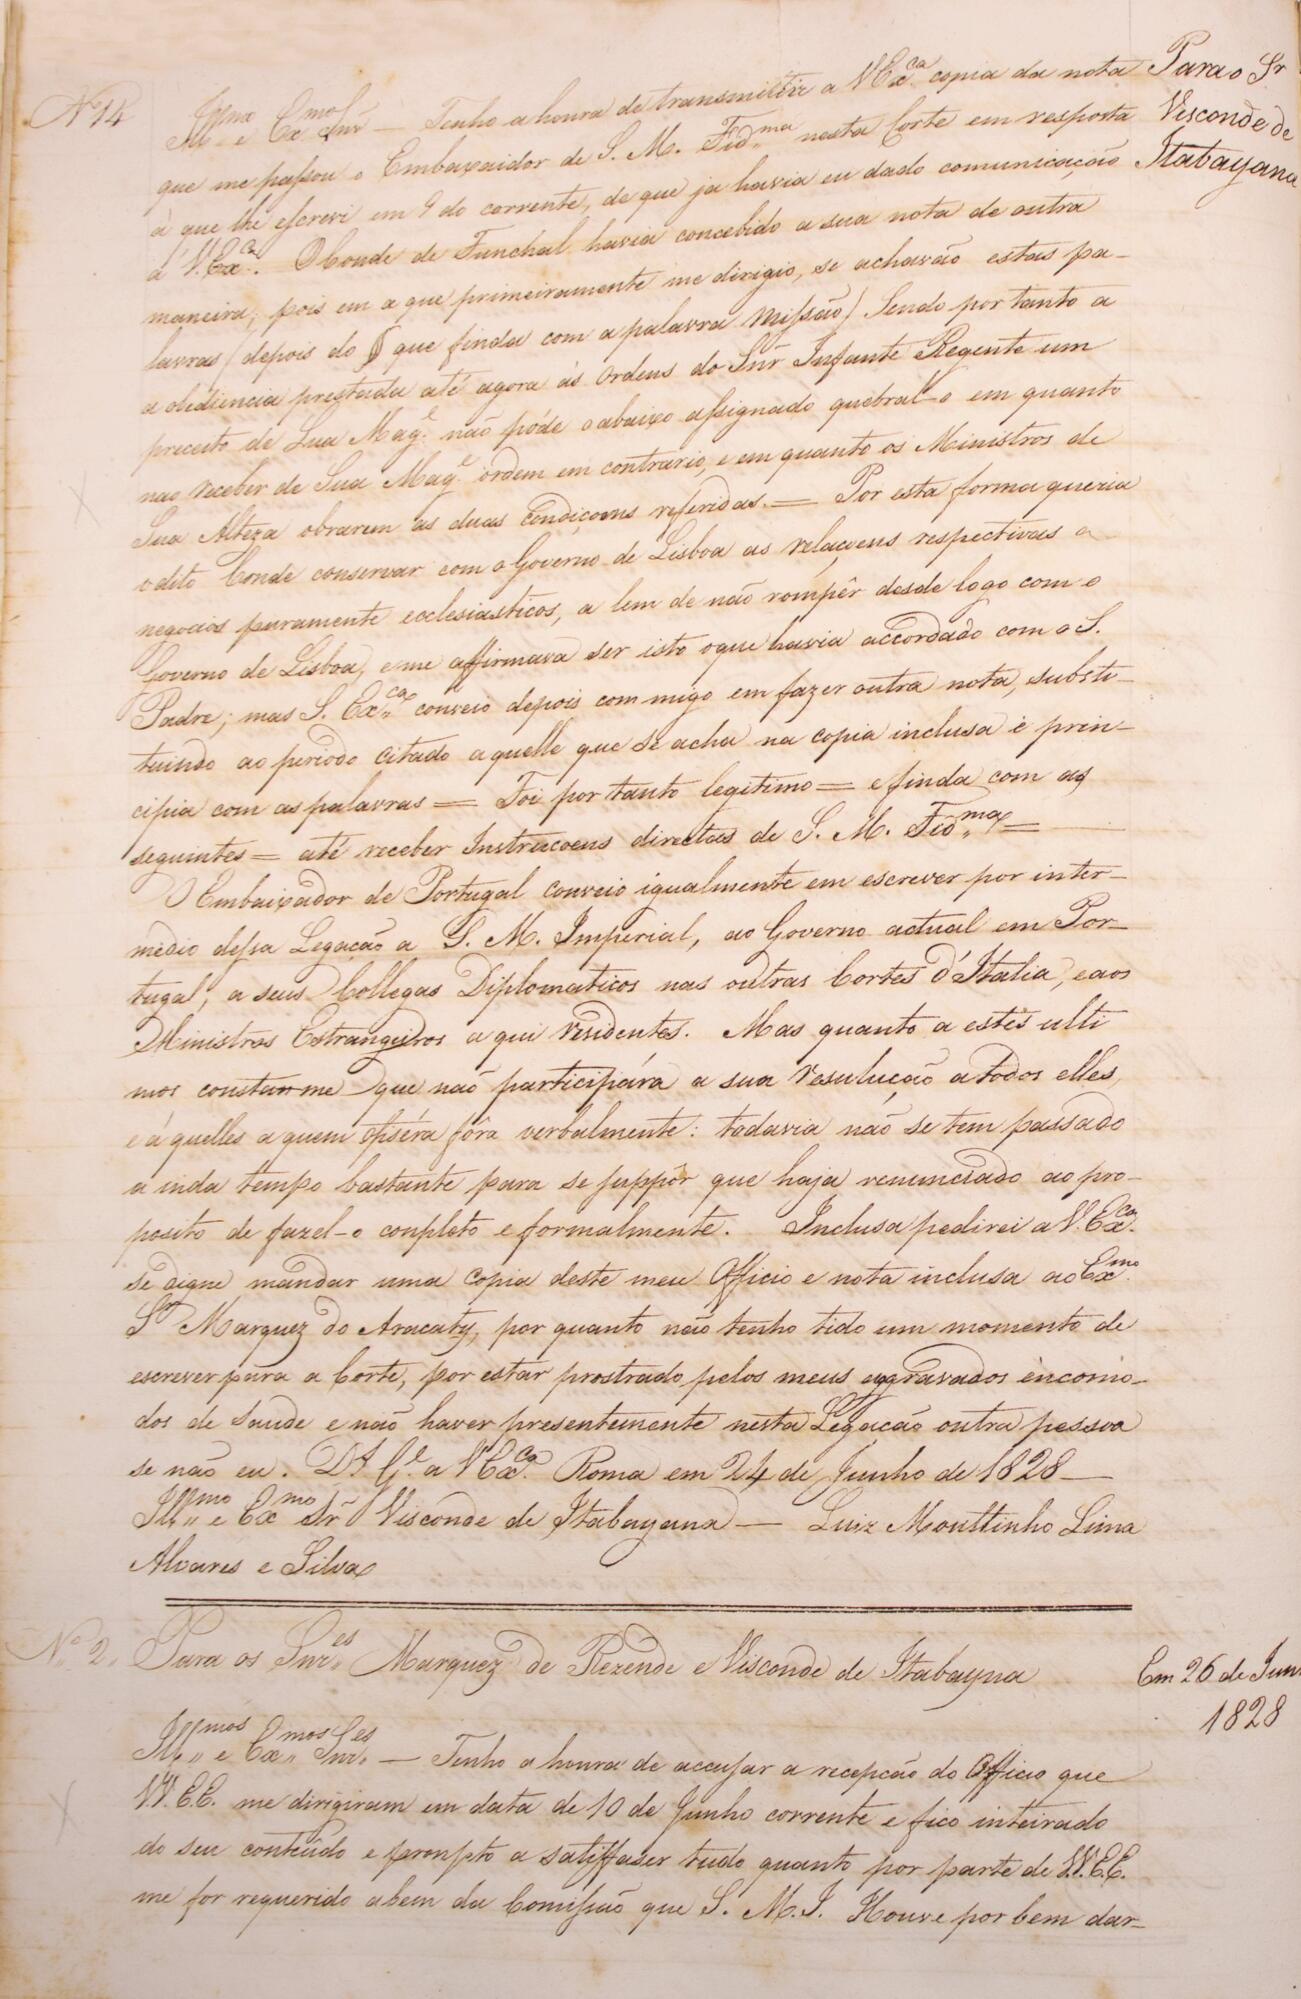 Nº 14
Para o Sr
Visconde de
Itabayana
Illmo e Exmo Snr — Tenho a honra de transmittir a V Exca copia da nota
que me passou o Embaxaidor de S. M. Fidma nesta Corte em resposta
á que lhe escrevi em 9 do corrente, de que ja havia eu dado comunicação
á V. Exca. O Conde de Funchal havia concebido a sua nota de outra
maneira; pois em a que primeiramente me dirigio, se achavão estas pa–
lavras (depois do § que finda com a palavra Missão) Sendo por tanto a
a obediencia prestada até agora ás Ordens do Snr Infante Regente um
preceito de Sua Mage não póde o abaixo assignado quebral-o em quanto
nao receber de Sua Mage ordem em contrario, e em quanto os Ministros de
Sua Alteza obrarem as duas condiçoens referidas. = Por esta forma queria
o dito Conde conservar com o Governo de Lisboa as relaçoens respectivas a
negocios puramente ecclesiasticos, a lem de não rompêr desde logo com o
Governo de Lisboa, e me affirmava ser isto o que havia accordado com o S.
Padre; mas S. Exca conveio depois com migo em fazer outra nota, substi–
tuindo ao periodo citado aquelle que se acha na copia inclusa e prin–
cipia com as palavras = Foi por tanto legitimo = e finda com as
seguintes = até receber Instrucoens directas de S. M. Fidma =
O Embaixador de Portugal conveio igualmente em escrever por inter–
medio dessa Legação a S. M. Imperial, ao Governo actual em Por–
tugal, a seus Collegas Diplomaticos nas outras Cortes d'Italia, e aos
Ministros Estrangeiros a qui residentes. Mas quanto a estes ulti
mos constam me que não participára a sua resulução a todos elles,
e á quelles a quem fisera fôra verbalmente: todavia não se tem passado
a inda tempo bastante para se suppôr que haja renunciado ao pro–
posito de fazel-o conpleto e formalmente. Inclusa pedirei a V. Exca.
se digne mandar uma copia deste meu Officio e nota inclusa ao Exmo.
Sr Marquez do Aracaty, por quanto não tenho tido um momento de
escrever para a Corte, por estar prostrado pelos meus aggravados incomo–
dos de saude e não haver presentemente nesta Legação outra pessoa
se não eu. Ds Ge a V Exca. Roma em 24 de Junho de 1828 —
Illmo e Exmo Sr Visconde de Itabayana — Luiz Mouttinho Lima
Alvares e Silva
Nº 2.
Para os Snres Marquez de Rezende e Visconde de Itabayna
Em 26 de Jun
1828
Illmos e Exmos Snres — Tenho a honra de accusar a recepção do Officio que
VV. E.E. me dirigiram em data de 10 de Junho corrente e fico inteirado
do seu conteúdo e prompto a satisffaser tudo quanto por parte de VV. E.E.
me for requerido a bem da Comissão que S. M. I. Houve por bem dar–